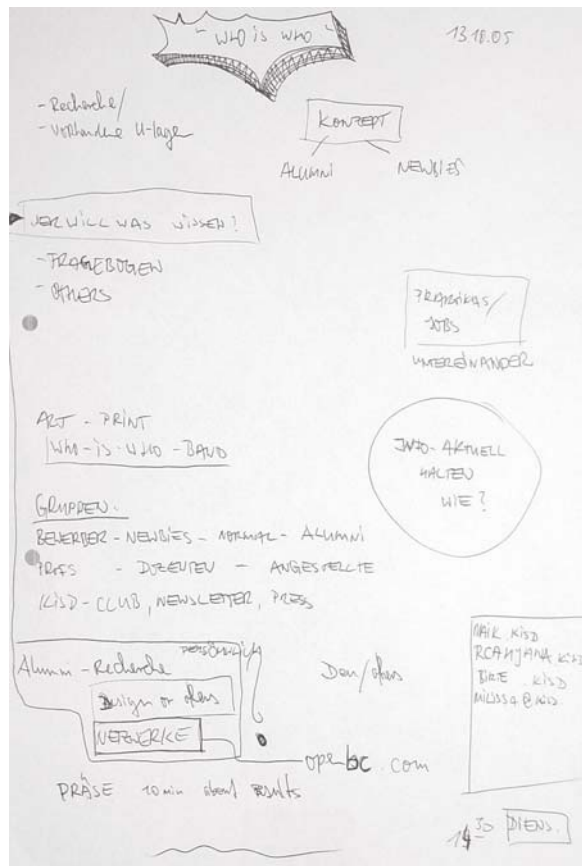 WHO is WHO
13.10.05
- Recherche/
- Vorhandene U-lagen
KONZEPT
ALUMNI NEWBIES
WER WILL WAS WISSEN?
- FRAGEBÖGEN
- OTHERS
PRAKTIKAS/
JOBS
UNTEREINANDER
ART - PRINT
WHO-is-WHO-BAND
INFO-AKTUELL
HALTEN
WIE?
GRUPPEN.
BEWERBER - NEWBIES - NORMAL - ALUMNI
PROFS - DOZENTEN - ANGESTELLTE
KISD-CLUB, NEWSLETTER, PRESS
PERSÖNLICH
Alumni-Recherche
Design or
NETZWERKE
openbc.com
MAIK.KISD
KISD
BIRTE.KISD
MILISSA@KISD.
PRÄSE 10 min about results
14 30 DIENS.